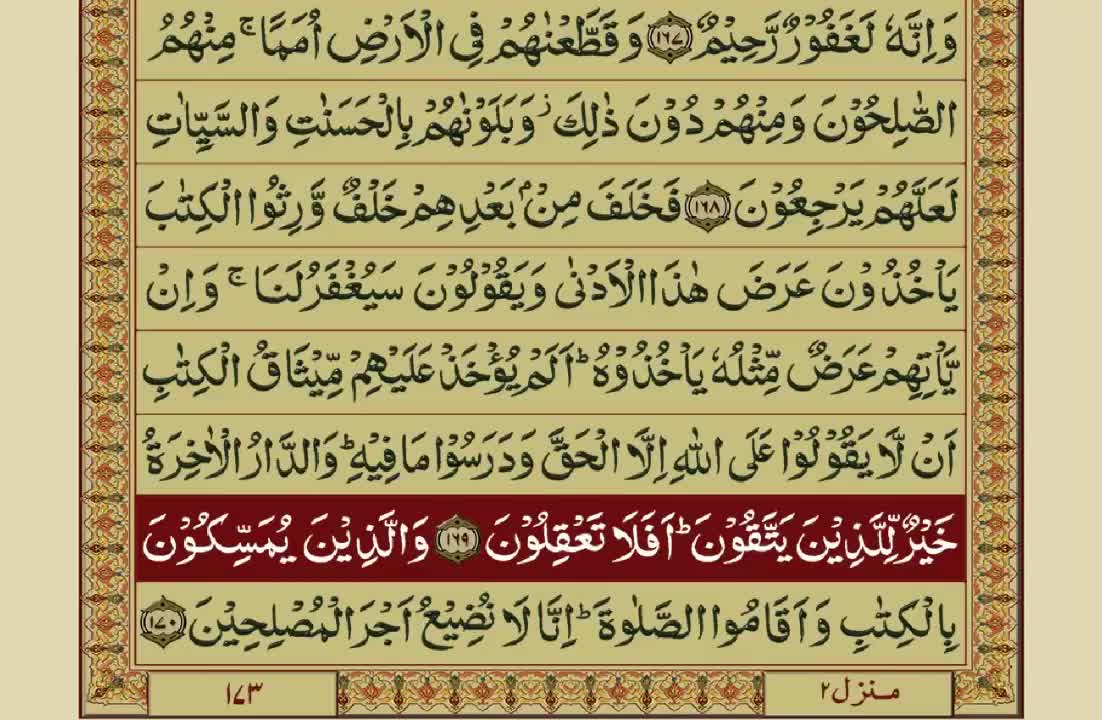 وَاِنَّهٗ لَغَفُوۡرٌ رَّحِيۡمٌ ﴿۱۶۷﴾ وَقَطَّعۡنٰهُمۡ فِى الۡاَرۡضِ اُمَمًا ۚ مِنۡهُمُ
الصّٰلِحُوۡنَ وَمِنۡهُمۡ دُوۡنَ ذٰلِكَ ز وَبَلَوۡنٰهُمۡ بِالۡحَسَنٰتِ وَالسَّيِّاٰتِ
لَعَلَّهُمۡ يَرۡجِعُوۡنَ ﴿۱۶۸﴾ فَخَلَفَ مِنۡۢ بَعۡدِهِمۡ خَلۡفٌ وَّرِثُوا الۡكِتٰبَ
يَاۡخُذُوۡنَ عَرَضَ هٰذَا الۡاَدۡنٰى وَيَقُوۡلُوۡنَ سَيُغۡفَرُ لَنَا ۚ وَاِنۡ
يَّاۡتِهِمۡ عَرَضٌ مِّثۡلُهٗ يَاۡخُذُوۡهُ ؕ اَلَمۡ يُؤۡخَذۡ عَلَيۡهِمۡ مِّيۡثَاقُ الۡكِتٰبِ
اَنۡ لَّا يَقُوۡلُوۡا عَلَى اللّٰهِ اِلَّا الۡحَقَّ وَدَرَسُوۡا مَا فِيۡهِ ؕ وَالدَّارُ الۡاٰخِرَةُ
خَيۡرٌ لِّلَّذِيۡنَ يَتَّقُوۡنَ ؕ اَفَلَا تَعۡقِلُوۡنَ ﴿۱۶۹﴾ وَالَّذِيۡنَ يُمَسِّكُوۡنَ
بِالۡكِتٰبِ وَاَقَامُوا الصَّلٰوةَ ؕ اِنَّا لَا نُضِيۡعُ اَجۡرَ الۡمُصۡلِحِيۡنَ ﴿۱۷۰﴾
منزل ۲ ۱۷۳